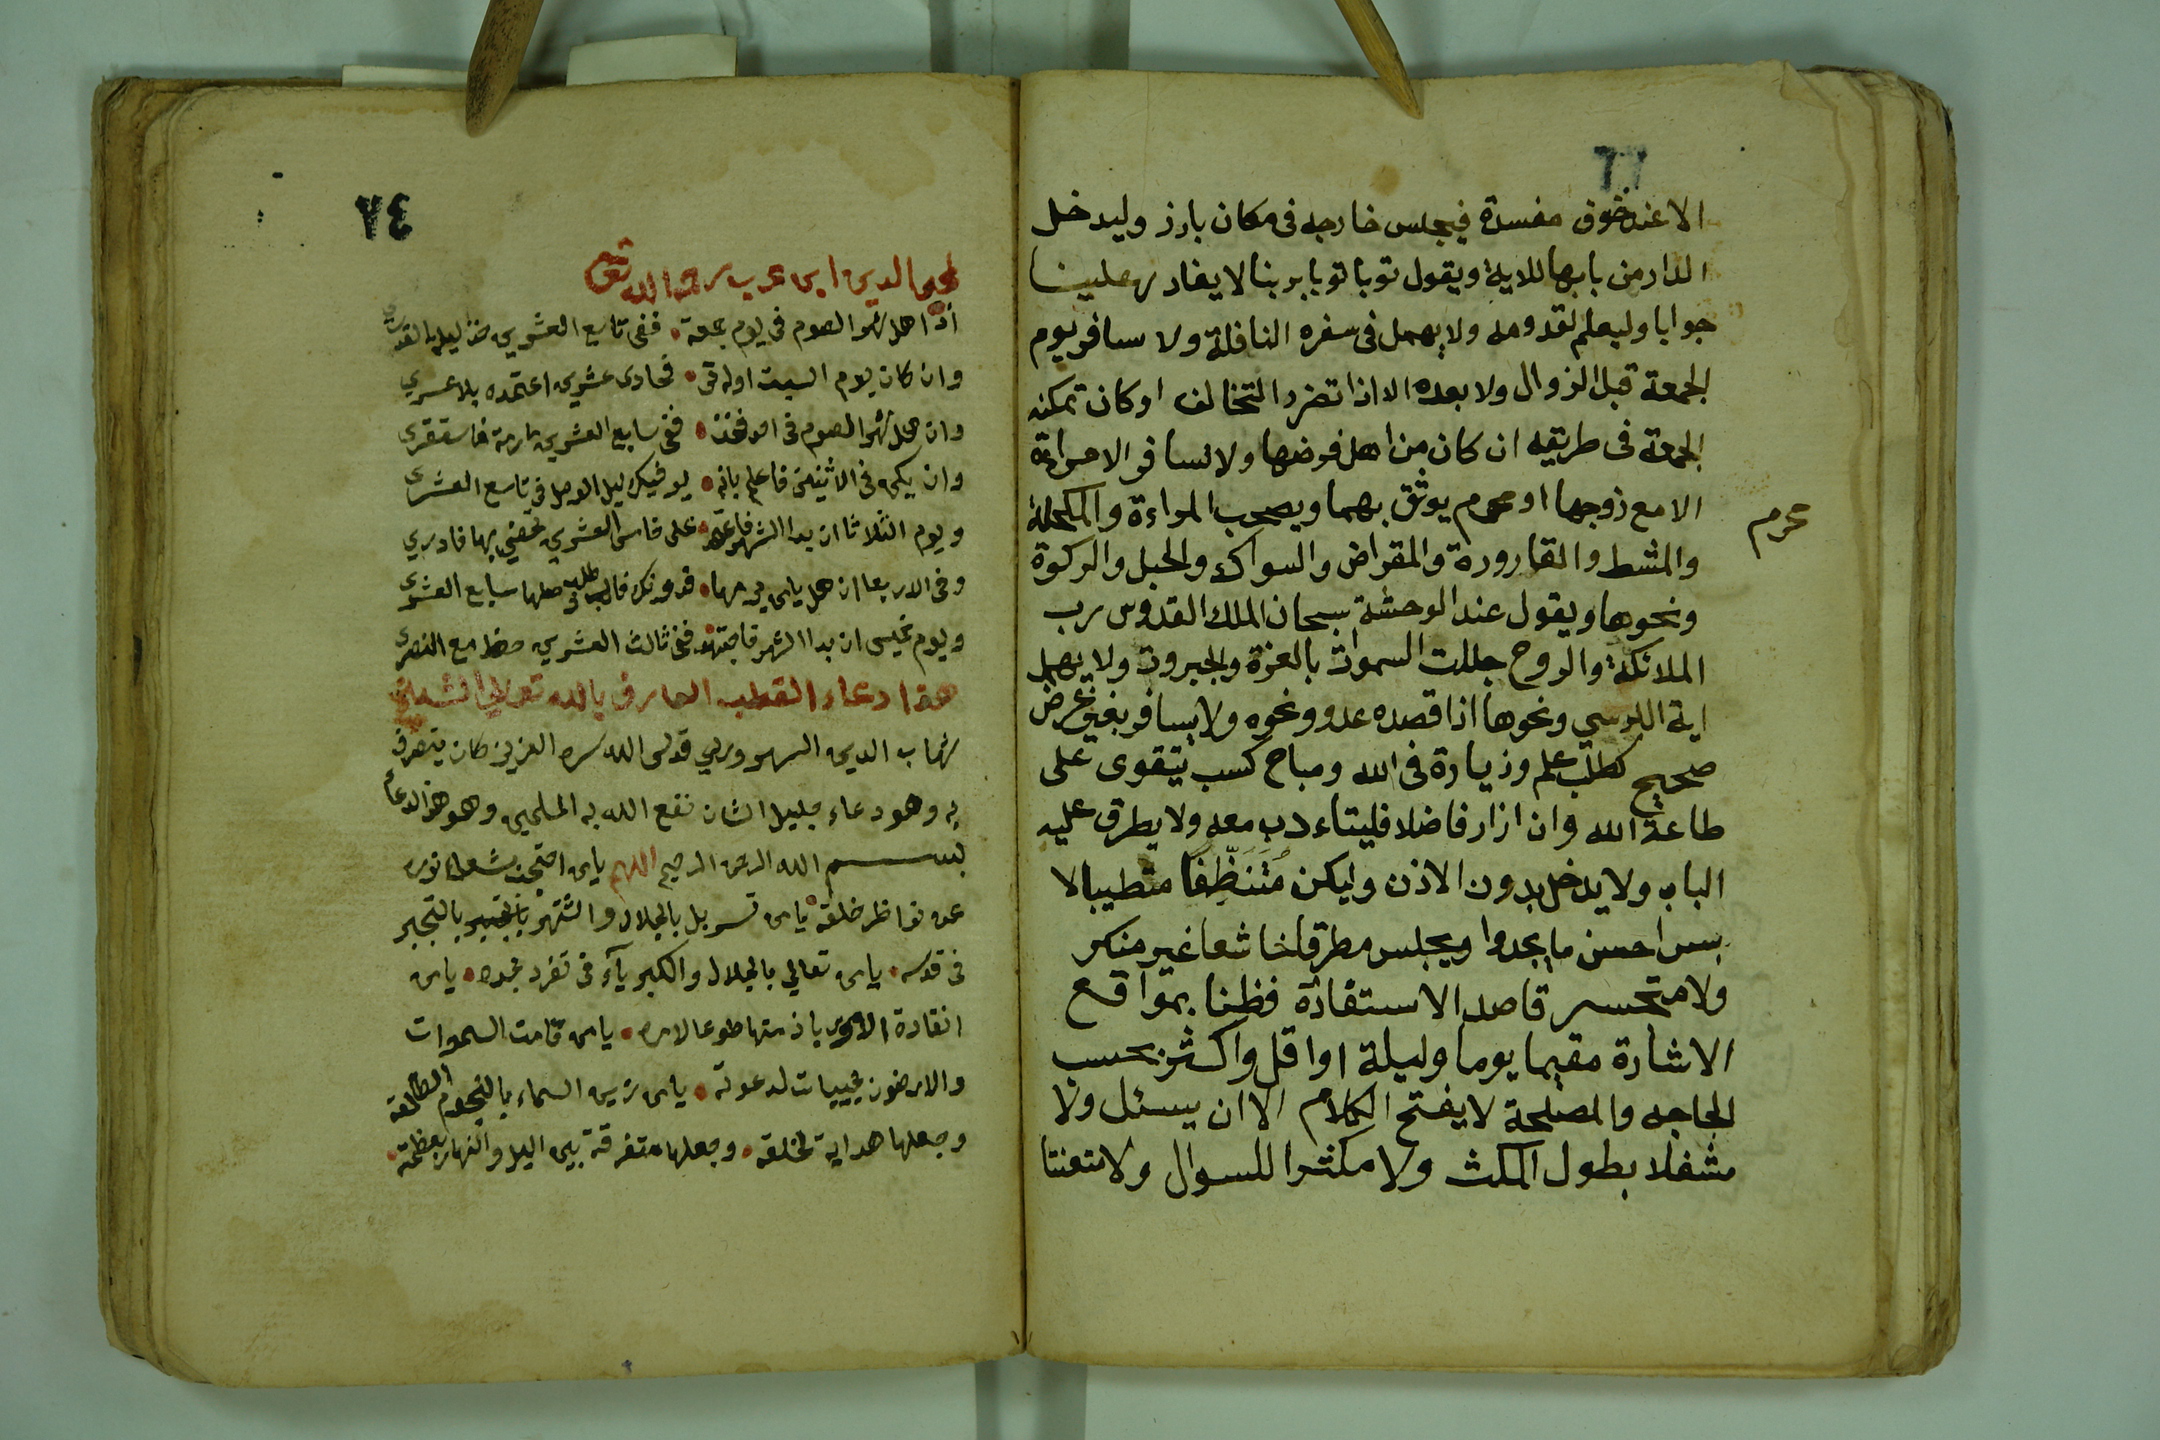 ٦٦
الا عند خوف مفسدة فيجلس خارجه فى مكان بارز وليدخل
الدار من بابها للاية ويقول توبا توبا لربنا لا يغادر علينا
حوابا وليعلم لقدومه ولا يهمل فى سفره النافلة ولا سافر يوم
الجمعة قبل الزوال ولا بعده الا اذا تضرر التخالف او كان تمكنه
الجمعة فى طريقه ان كان من اهل فرضها ولا تسافر الامراءة
الا مع زوجها او محرم يوثق بهما ويصحب المراءة والمكحلة
محرم
والمشط والقارورة والمقراض والسواك والحبل والركوة
ونحوها ويقول عند الوحشة سبحان الملك القدوس رب
الملائكة والروح جللت السموات بالعزة والجبروت ولا يهمل
اية الكرسي ونحوها اذا قصده عدو ونحوه ولا يسافر بغير غرض
صحيح كطلب علم وزيارة فى الله ومباح كسب يتقوى على
طاعة الله وان ازار فاضلا فليتاءدب معه ولا يطرق عليه
الباب ولا يدخل بدون الاذن وليكن مُتَنَظِّفًا متطيبا لا
بس احسن ما يجدوا ويجلس مطرقا خاشعا غير منكر
ولا متحسر قاصد الاستفادة فظنا بمواقع
الاشارة مقيما يوما وليلة او اقل واكثر بحسب
الحاجه والمصلحة لا يفتح الكلام الا ان يسئل ولا
مشغلا بطول المكث ولا مكثرا للسوال ولا متعنتا
٧٤
لمحى الدين ابن عربى رحمه الله تعا
اذا اهل شهر الصوم فى يوم جمعة ففى تاسع العشرين خذ ليلة القدرى
وان كان يوم السبت اوله فحادى عشرين اعتمده بلا عسرى
وان هل شهر الصوم فى ففى سابع العشرين
وان يكن فى الاثنين فاعلم بانه يوفيك ليل الوصل فى تاسع العشرى
ويوم الثلاثا ان بدا الشهر على خامس العشرين تحضى بها فادرى
وفى الاربعا ان هل يامن يرمها فدونك سابع العشرى
ويوم خميس ان بدا الشهر ففى ثالث العشرين
هذا دعاء القطب العارف بالله تعالى الشيخ
شهاب الدين السهروردي قدس الله سره العزيز كان يتصرف
به وهو دعاء جليل الشان نفع الله به المسلمين وهو هذا الدعاء
بسم الله الرحمن الرحيم اللهم يامن احتجب بشعاع نوره
عن نواظر خلقه يامن تسربل بالجلال واشتهر بالتجبر
فى قدسه يامن تعالى بالجلال والكبرياء فى تفرد مجده يامن
انقادة الامور باذمتها طوعا لامره يامن قامت السموات
والارضون مجيبات لدعوته يامن زين السماء بالنجوم الطالعة
وجعلها هداية لخلقه وجعلها متفرقة بين اليل والنهار بعظمته